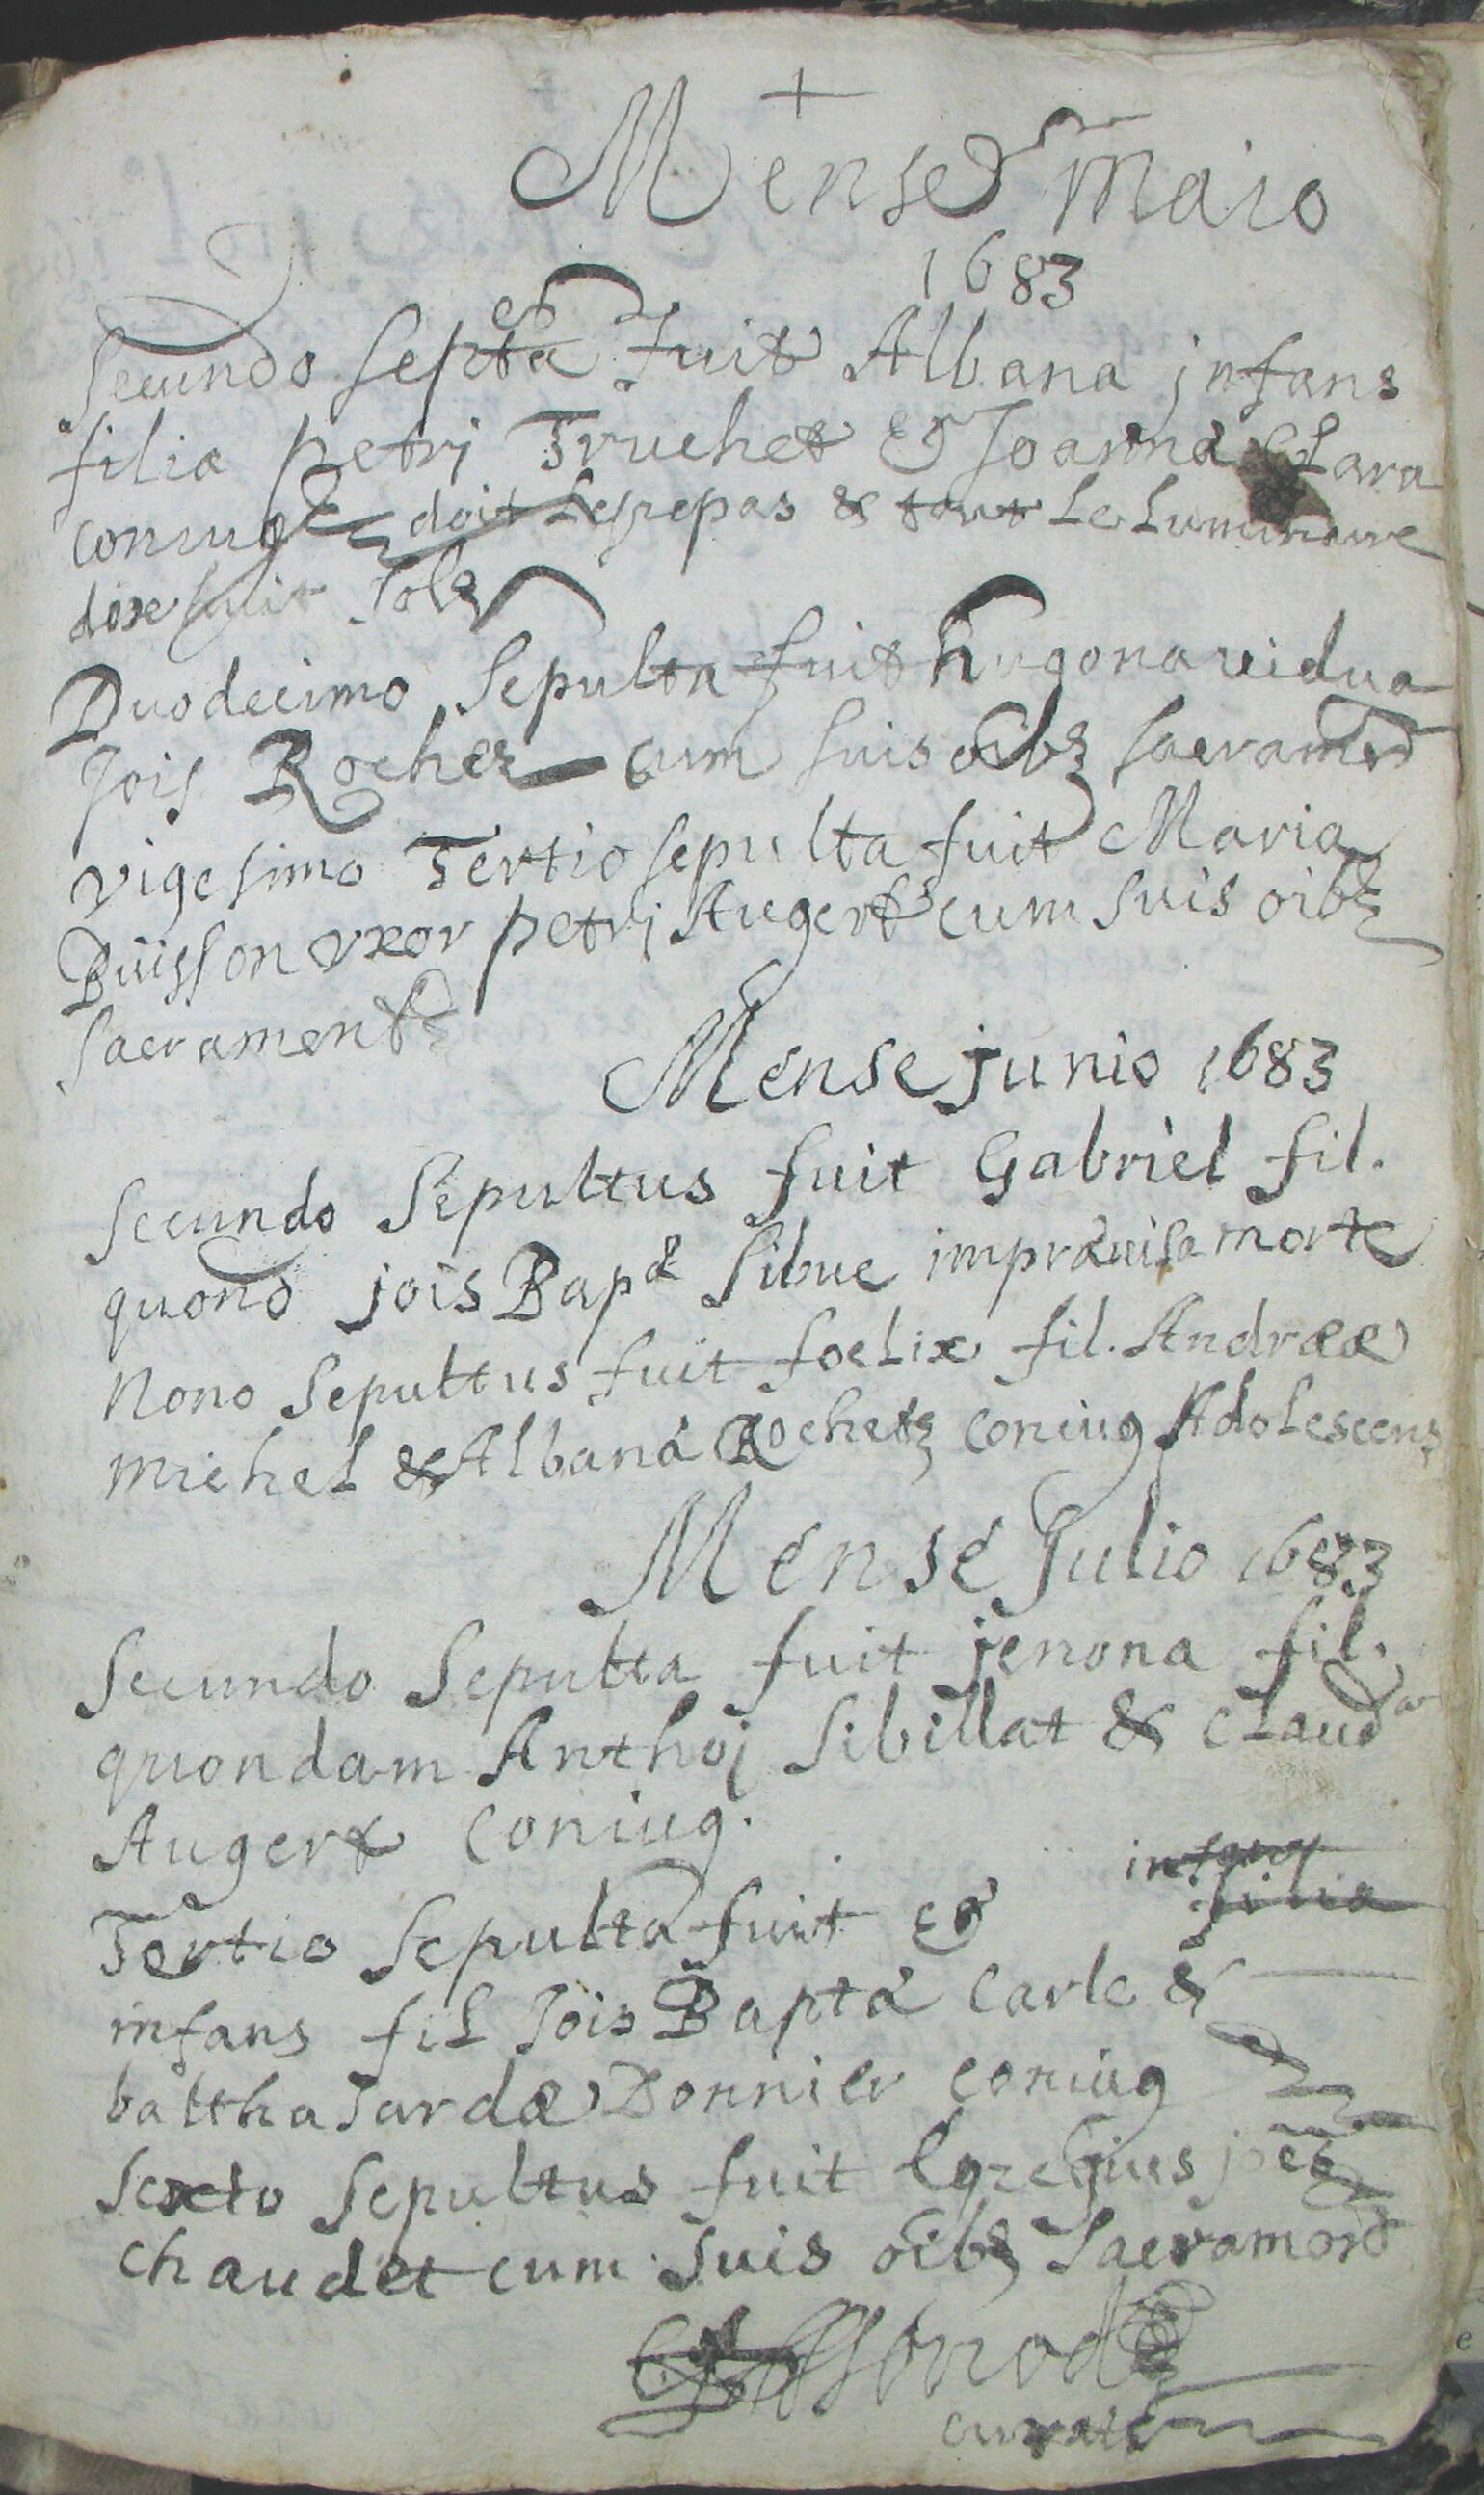 +
Mense Maio
1683
Secundo Septa fuit Albana jnfans
filia petrj Truchet & Joanna Clara
coniug doit Le repas & tout Le Luminaire
dixe fuit sols
Duodecimo Sepulta fuit hugona vidua
Jois Rochez cum suis oibz sacramen
vigesimo Tertio sepulta fuit Maria
Buisson vxor petrj Augert cum suis oibz
sacrament
Mense junio 1683
Secundo Sepultus fuit Gabriel fil.
quond jois Bapt Sibue impravisa morte
Nono Sepultus fuit foelix fil. Andreæ
michel & Albana Rochetz coniug Adolescens
Mense Julio 1683
Secundo Sepulta fuit jenona fil.
quondam Anthoj Sibillat & Claud
Augert Coniug.
Tertio Sepulta fuit &
infans fil Jois Bapta Carle &
balthasardæ Donnier coniug
Sexto Sepultus fuit Egregius joes
Chaudet cum suis oibz Sacramen
curate